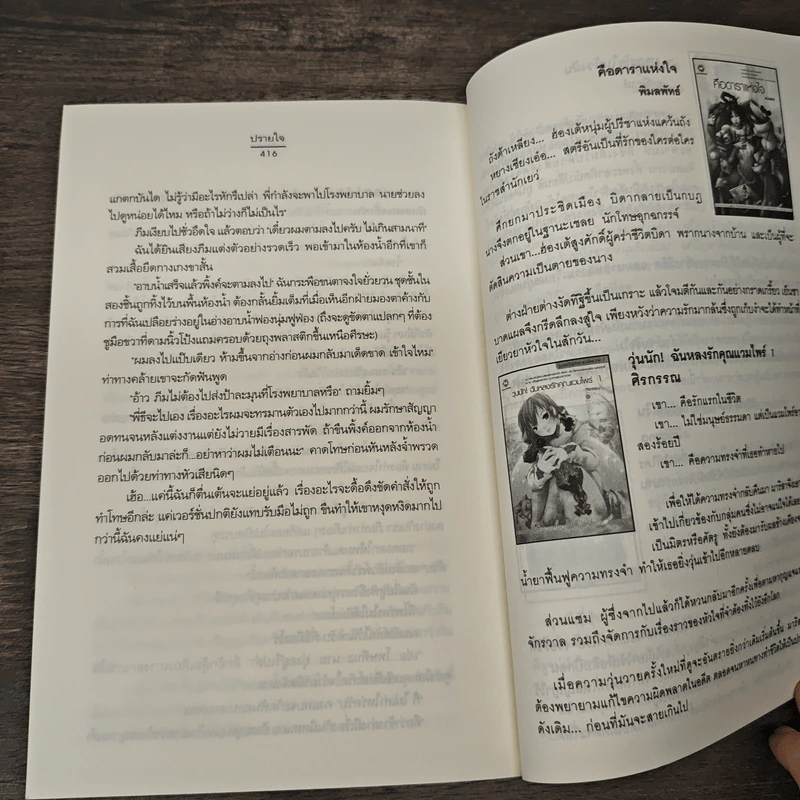 ปรายใจ
416
แกตกบันได ไม่รู้ว่ามีอะไรหักรึเปล่า พี่กำลังจะพาไปโรงพยาบาล นายช่วยลง
ไปดูหน่อยได้ไหม หรือถ้าไม่ว่างก็ไม่เป็นไร"
ภีมเงียบไปชั่วอึดใจ แล้วตอบว่า "เดี๋ยวผมตามลงไปครับ ไม่เกินสามนาที"
ฉันได้ยินเสียงภีมแต่งตัวอย่างรวดเร็ว พอเข้ามาในห้องน้ำอีกทีเขาก็
สวมเสื้อยืดกางเกงขาสั้น
"อาบน้ำเสร็จแล้วพิ้งค์จะตามลงไป" ฉันกระพือขนตางอนใจยั่วยวน ชุดชั้นใน
สองชิ้นถูกทิ้งไว้บนพื้นห้องน้ำ ต้องกลั้นยิ้มเต็มที่เมื่อเห็นอีกฝ่ายมองตาค้างกับ
การที่ฉันเปลือยร่างอยู่ในอ่างอาบน้ำฟองนุ่มฟูฟ่อง (ถึงจะดูขัดตาแปลกๆ ที่ต้อง
ชูมือขวาที่ดามนิ้วโป้งแถมครอบด้วยถุงพลาสติกขึ้นเหนือศีรษะ)
"ผมลงไปแป๊บเดียว ห้ามขึ้นจากอ่างก่อนผมกลับมาเด็ดขาด เข้าใจไหม"
ท่าทางคล้ายเขาจะกัดฟันพูด
"อ้าว ภีมไม่ต้องไปส่งป้าละมุนที่โรงพยาบาลหรือ" ถามยิ้มๆ
"พี่ธีจะไปเอง เรื่องอะไรผมจะทรมานตัวเองไปมากกว่านี้ ผมรักษาสัญญา
อดทนจนหลังแต่งงานแต่ยังไม่วายมีเรื่องสารพัด ถ้าขืนพิ้งค์ออกจากห้องน้ำ
ก่อนผมกลับมาล่ะก็...อย่าหาว่าผมไม่เตือนนะ" คาดโทษก่อนหันหลังจ้ำพรวด
ออกไปด้วยท่าทางหัวเสียนิดๆ
เฮ้อ...แค่นี้ฉันก็ตื่นเต้นจะแย่อยู่แล้ว เรื่องอะไรจะดื้อดึงขัดคำสั่งให้ถูก
ทำโทษอีกล่ะ แค่เวอร์ชั่นปกติยังแทบรับมือไม่ถูก ขืนทำให้เขาหงุดหงิดมากไป
กว่านี้ฉันคงแย่แน่ๆ
คือดาราแห่งใจ
พิมลพัทธ์
คือดาราแห่งใจ
ถังต้าเหลียง... ฮ่องเต้หนุ่มผู้ปรีชาแห่งแคว้นถัง
หยางเซียงเอ๋อ... สตรีอันเป็นที่รักของใครต่อใคร
ในราชสำนักเยว่
ศึกยกมาประชิดเมือง บิดากลายเป็นกบฏ
นางจึงตกอยู่ในฐานะเชลย นักโทษอุกฉกรรจ์
ส่วนเขา...ฮ่องเต้สูงศักดิ์ผู้คร่าชีวิตบิดา พรากนางจากบ้าน และเป็นผู้ที่จะ
ตัดสินความเป็นตายของนาง
ต่างฝ่ายต่างงัดทิฐิขึ้นเป็นเกราะ แล้วโจมตีกันและกันอย่างกราดเกรี้ยว เย็นชา
บาดแผลจึงกรีดลึกลงสู่ใจ เพียงหวังว่าความรักมากล้นซึ่งถูกเก็บงำจะได้ทำหน้าที่
เยียวยาหัวใจในสักวัน...
วุ่นนัก! ฉันหลงรักคุณแวมไพร์ 1
ศิรกรรณ
วุ่นนัก! ฉันหลงรักคุณแวมไพร์ 1
เขา... คือรักแรกในชีวิต
เขา... ไม่ใช่มนุษย์ธรรมดา แต่เป็นแวมไพร์
สองร้อยปี
เขา... คือความทรงจำที่เธอทำหายไป
เพื่อให้ได้ความทรงจำกลับคืนมา มาริสาจึง
เข้าไปเกี่ยวข้องกับกลุ่มคนซึ่งไม่อาจแน่ใจได้เลย
เป็นมิตรหรือศัตรู ทั้งยังต้องมารับผลข้างเคียง
น้ำยาฟื้นฟูความทรงจำ ทำให้เธอยิ่งวุ่นเข้าไปอีกหลายตลบ
ส่วนแซม ผู้ซึ่งจากไปแล้วก็ได้หวนกลับมาอีกครั้งเพื่อตามหากุญแจ
จักรวาล รวมถึงจัดการกับเรื่องราวของหัวใจที่จำต้องทิ้งไว้ยังอีกโลก
เมื่อความวุ่นวายครั้งใหม่ที่ดูจะอันตรายยิ่งกว่าเดิมเริ่มต้นขึ้น
ต้องพยายามแก้ไขความผิดพลาดในอดีต ตลอดจนหาหนทางทำชีวิตให้เป็น
ดังเดิม... ก่อนที่มันจะสายเกินไป